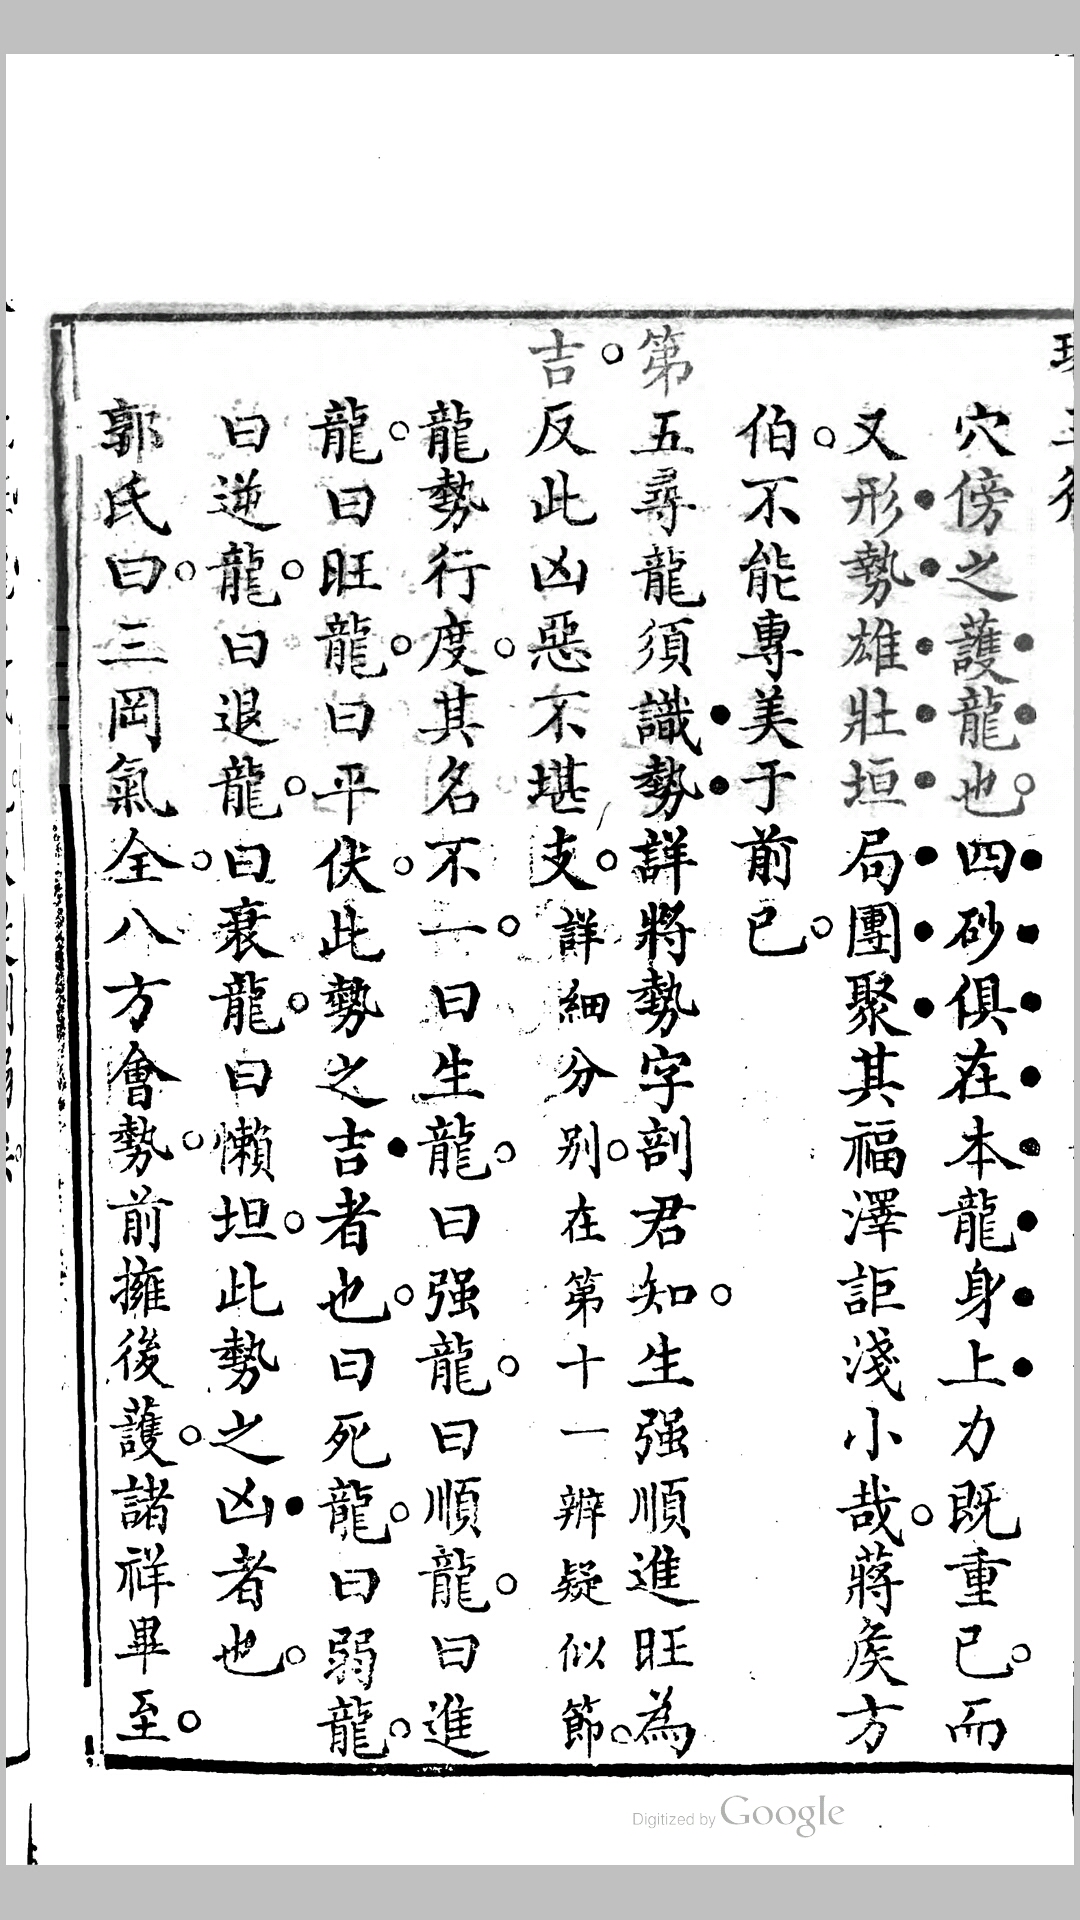 穴傍之護龍也。四砂俱在本龍身上力既重已。而
又形勢雄壯垣局團聚其福澤詎淺小哉。蔣矦方
伯。不能專美于前已。
第五尋龍須識勢詳將勢字剖君知。生强順進旺為
吉。反此凶惡不堪支。詳細分別。在第十一辨疑似節。
龍勢行度。其名不一。曰生龍。曰强龍。曰順龍。曰進
龍。曰旺龍。曰平伏。此勢之吉者也。曰死龍。曰弱龍。
曰逆龍。曰退龍。曰衰龍。曰懶坦。此勢之凶者也。
郭氏曰。三岡氣全。八方會勢。前擁後護。諸祥畢至。
Digitized by Google